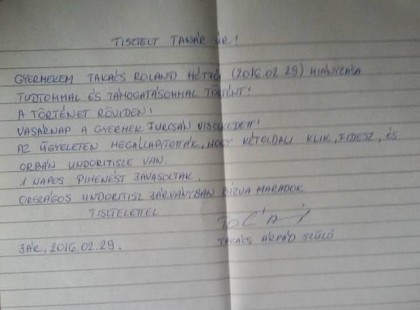 TISZTELT TANÁR ÚR!
GYERMEKEM TAKÁCS ROLAND HÉTFŐI (2016.02.29) HIÁNYZÁSA
TUDTOMMAL ÉS TÁMOGATÁSOMMAL TÖRTÉNT!
A TÖRTÉNET RÖVIDEN:
VASÁRNAP A GYERMEK FURCSÁN VISELKEDETT!
AZ ÜGYELETEN MEGÁLLAPÍTOTTÁK, HOGY KÉTOLDALI KLIK, FIDESZ, ÉS
ORBÁN UNDORITISZE VAN.
1 NAPOS PIHENÉST JAVASOLTAK.
ORSZÁGOS UNDORITISZ JÁRVÁNYBAN BÍZVA MARADOK
TISZTELETTEL
TAKÁCS ÁRPÁD SZÜLŐ
2016.02.29.